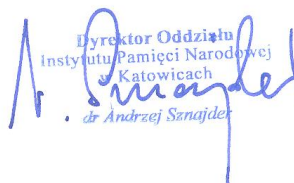 Dyrektor Oddziału
Instytutu Pamięci Narodowej
w Katowicach
dr Andrzej Sznajder